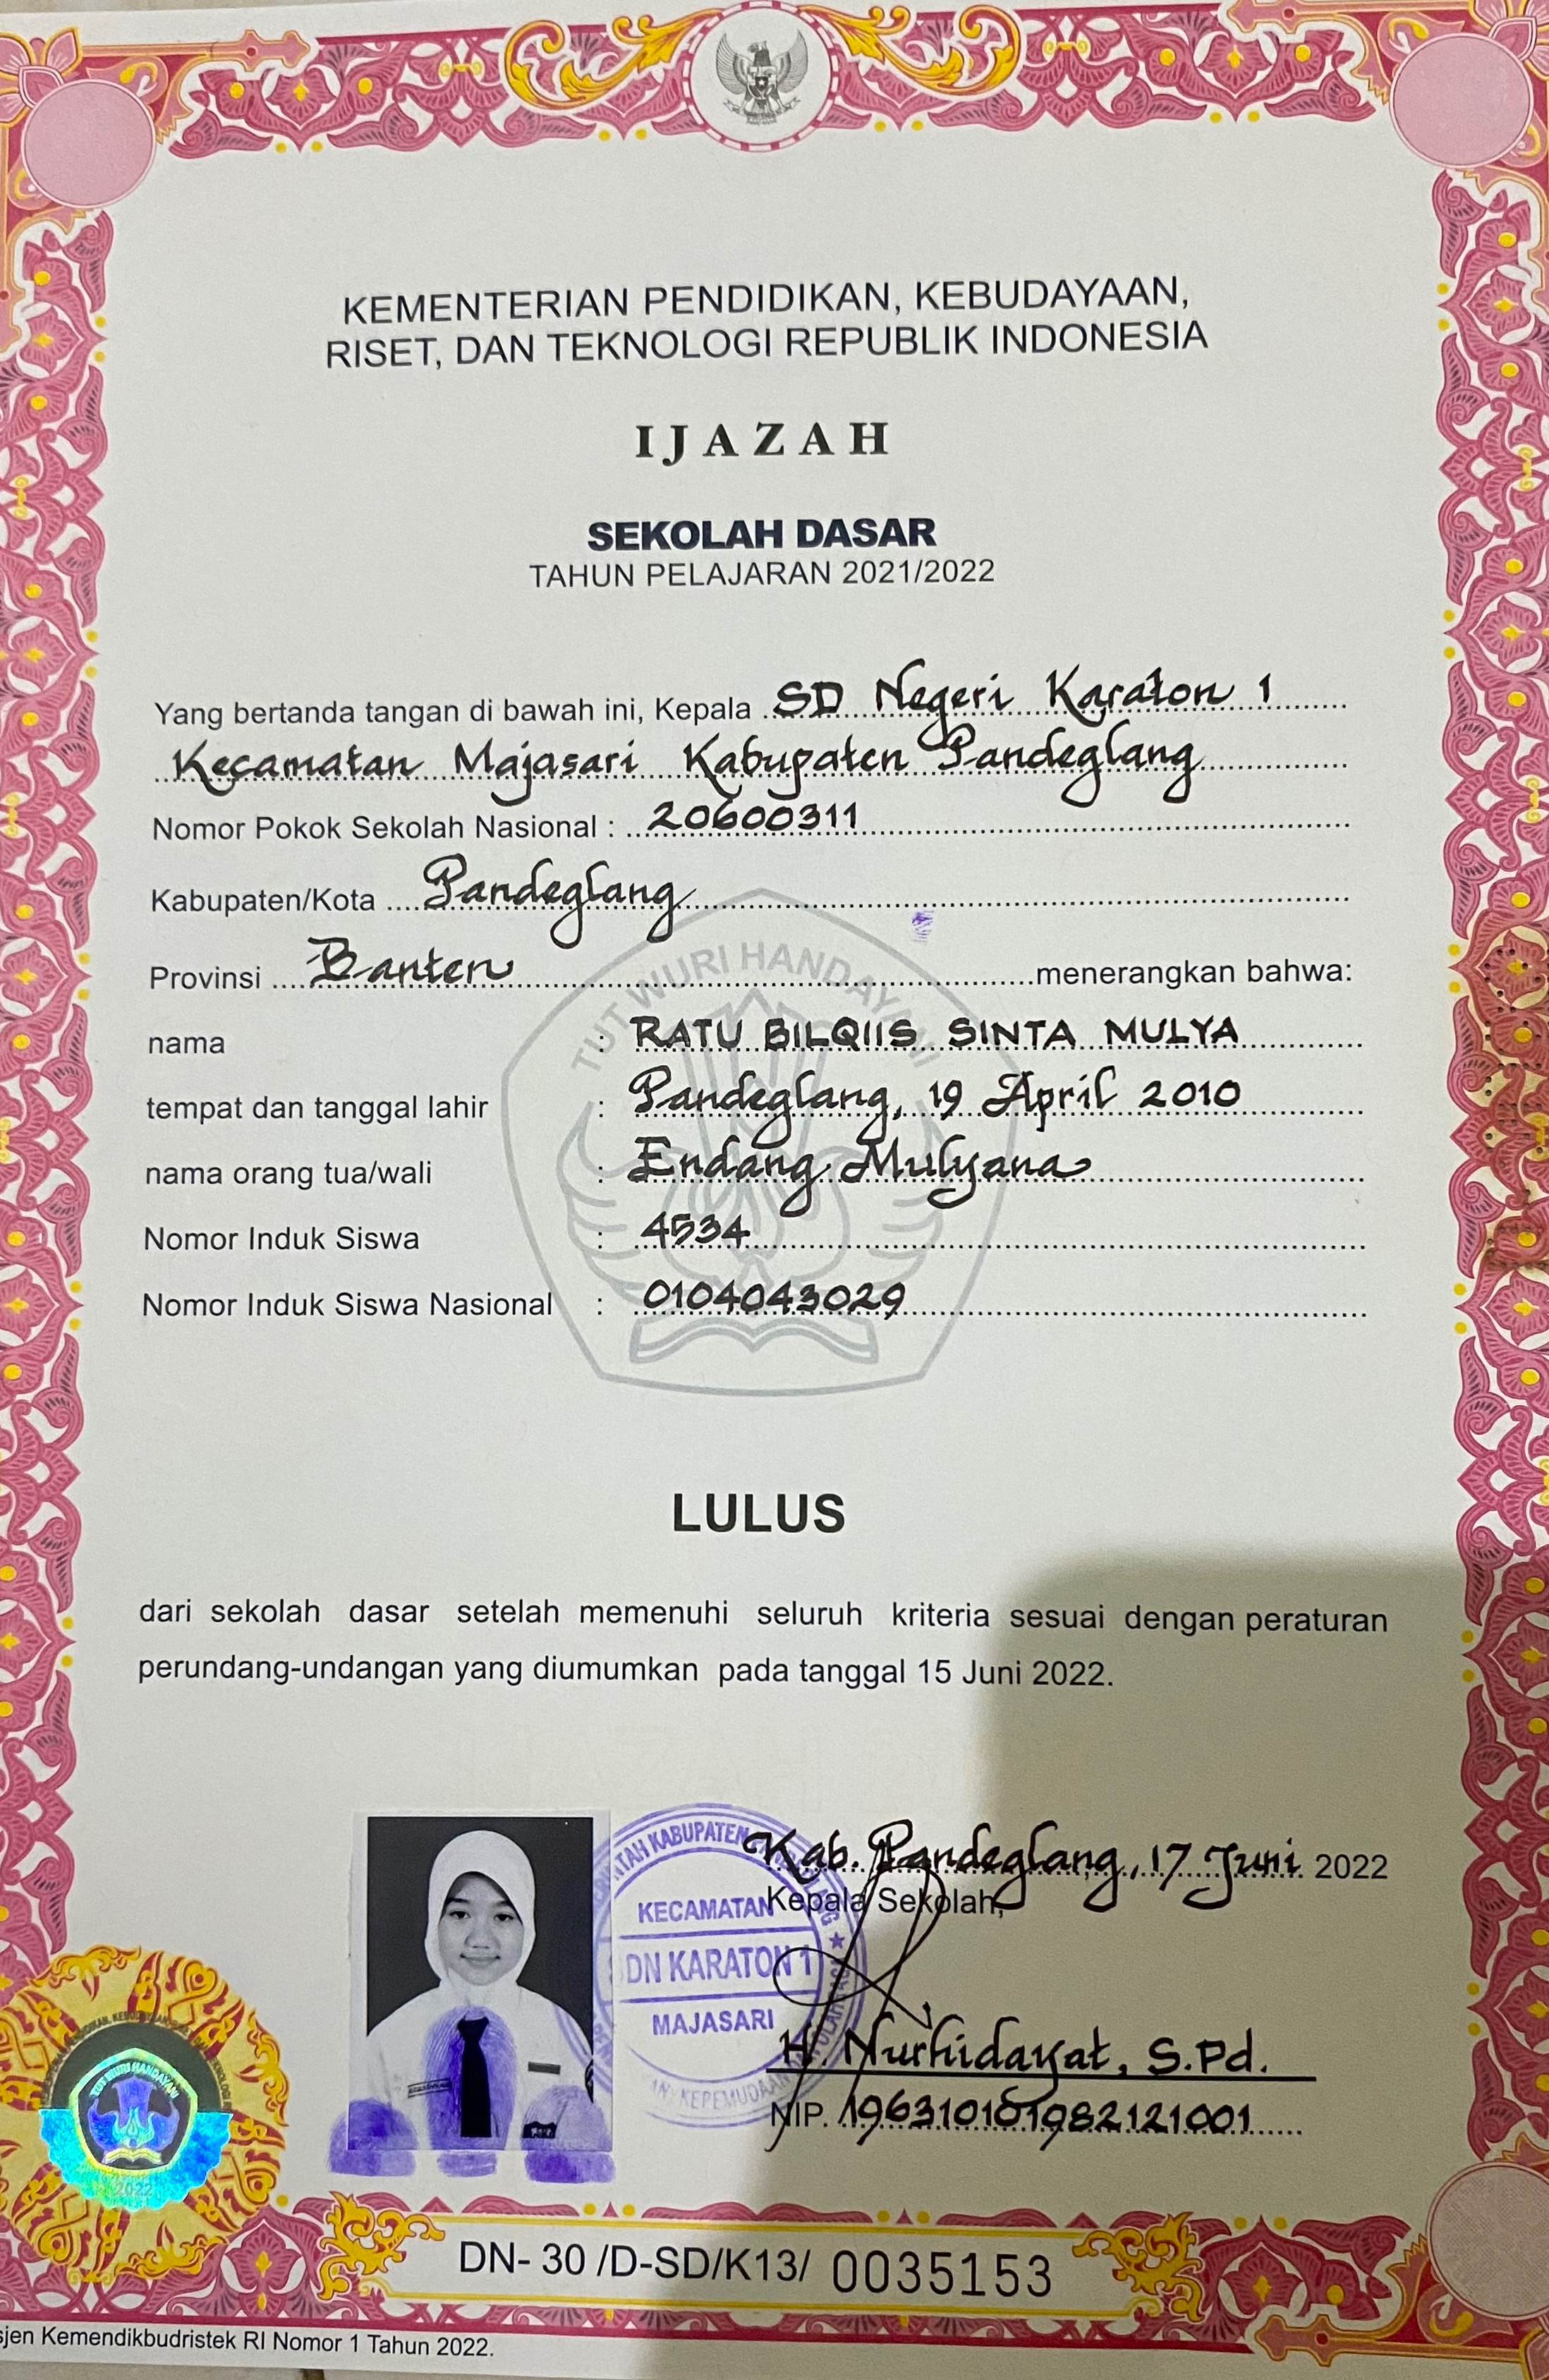 KEMENTERIAN PENDIDIKAN, KEBUDAYAAN,
RISET, DAN TEKNOLOGI REPUBLIK INDONESIA
IJAZAH
SEKOLAH DASAR
TAHUN PELAJARAN 2021/2022
Yang bertanda tangan di bawah ini, Kepala SD Negeri Karaton 1
Kecamatan Majasari Kabupaten Pandeglang
Nomor Pokok Sekolah Nasional : 20600311
Kabupaten/Kota Pandeglang
Provinsi Banten menerangkan bahwa:
TUT WURI HANDAYANI
nama : RATU BILQIIS SINTA MULYA
tempat dan tanggal lahir : Pandeglang, 19 April 2010
nama orang tua/wali : Endang Mulyana
Nomor Induk Siswa : 4534
Nomor Induk Siswa Nasional : 0104043029
LULUS
dari sekolah dasar setelah memenuhi seluruh kriteria sesuai dengan peraturan
perundang-undangan yang diumumkan pada tanggal 15 Juni 2022.
Kab. Pandeglang, 17 Juni 2022
Kepala Sekolah,
KABUPATEN
KECAMATAN
DN KARATON 1
MAJASARI
KEPEMUDAAN
H. Nurhidayat, S.Pd.
NIP. 196310101982121001
TUT WURI HANDAYANI
2022
DN- 30 /D-SD/K13/ 0035153
sjen Kemendikbudristek RI Nomor 1 Tahun 2022.